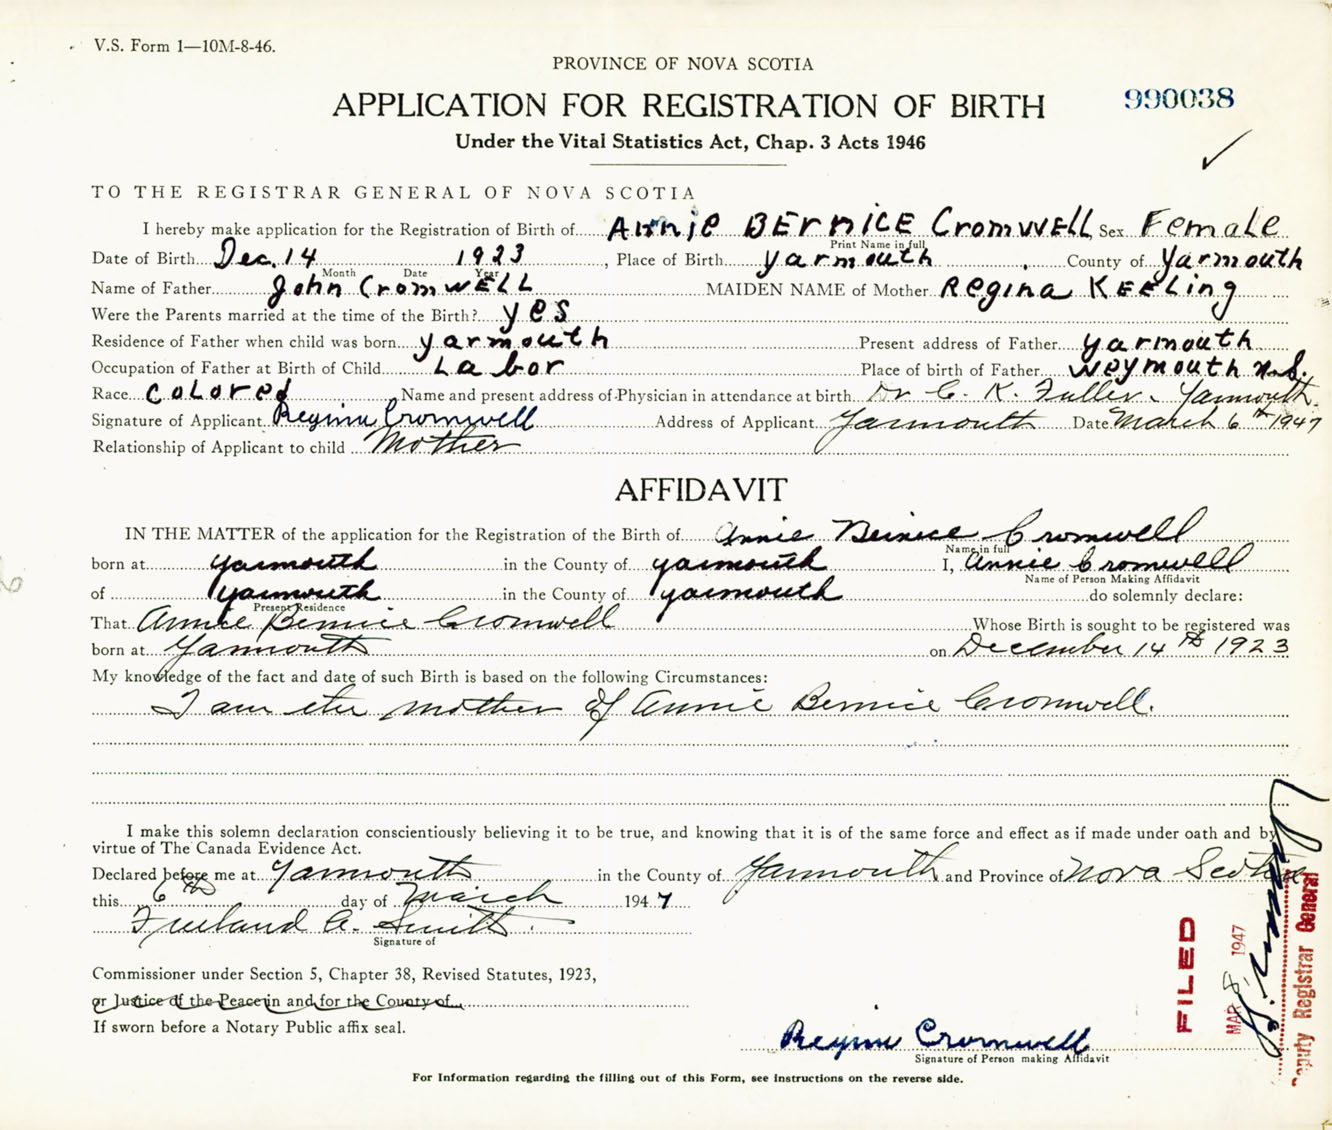 V.S. Form 1—10M-8-46.
PROVINCE OF NOVA SCOTIA
APPLICATION FOR REGISTRATION OF BIRTH 990038
Under the Vital Statistics Act, Chap. 3 Acts 1946
TO THE REGISTRAR GENERAL OF NOVA SCOTIA
I hereby make application for the Registration of Birth of Annie BERNICE CromwELL, Sex Female
Print Name in full
Date of Birth Dec. 14 1923, Place of Birth yarmouth, County of yarmouth
Month Date Year
Name of Father John CromwELL MAIDEN NAME of Mother Regina KEELing
Were the Parents married at the time of the Birth? yes
Residence of Father when child was born yarmouth Present address of Father yarmouth
Occupation of Father at Birth of Child Labor Place of birth of Father Weymouth N.S.
Race colored Name and present address of Physician in attendance at birth Dr C. K. Fuller. Yarmouth.
Signature of Applicant Regina Cromwell Address of Applicant Yarmouth Date March 6th 1947
Relationship of Applicant to child Mother
AFFIDAVIT
IN THE MATTER of the application for the Registration of the Birth of Annie Bernice Cromwell
Name in full
born at yarmouth in the County of yarmouth I, Annie Cromwell
Name of Person Making Affidavit
of yarmouth in the County of yarmouth do solemnly declare:
Present Residence
That Annie Bernice Cromwell Whose Birth is sought to be registered was
born at Yarmouth on December 14th 1923
My knowledge of the fact and date of such Birth is based on the following Circumstances:
I am the mother of Annie Bernice Cromwell.
I make this solemn declaration conscientiously believing it to be true, and knowing that it is of the same force and effect as if made under oath and by
virtue of The Canada Evidence Act.
Declared before me at Yarmouth in the County of Yarmouth and Province of Nova Scotia
this 6th day of March 1947
Freeland A. Smith.
Signature of
Commissioner under Section 5, Chapter 38, Revised Statutes, 1923,
or Justice of the Peace in and for the County of
If sworn before a Notary Public affix seal.
Regina Cromwell
Signature of Person making Affidavit
For Information regarding the filling out of this Form, see instructions on the reverse side.
FILED
MAR 8 1947
Deputy Registrar General